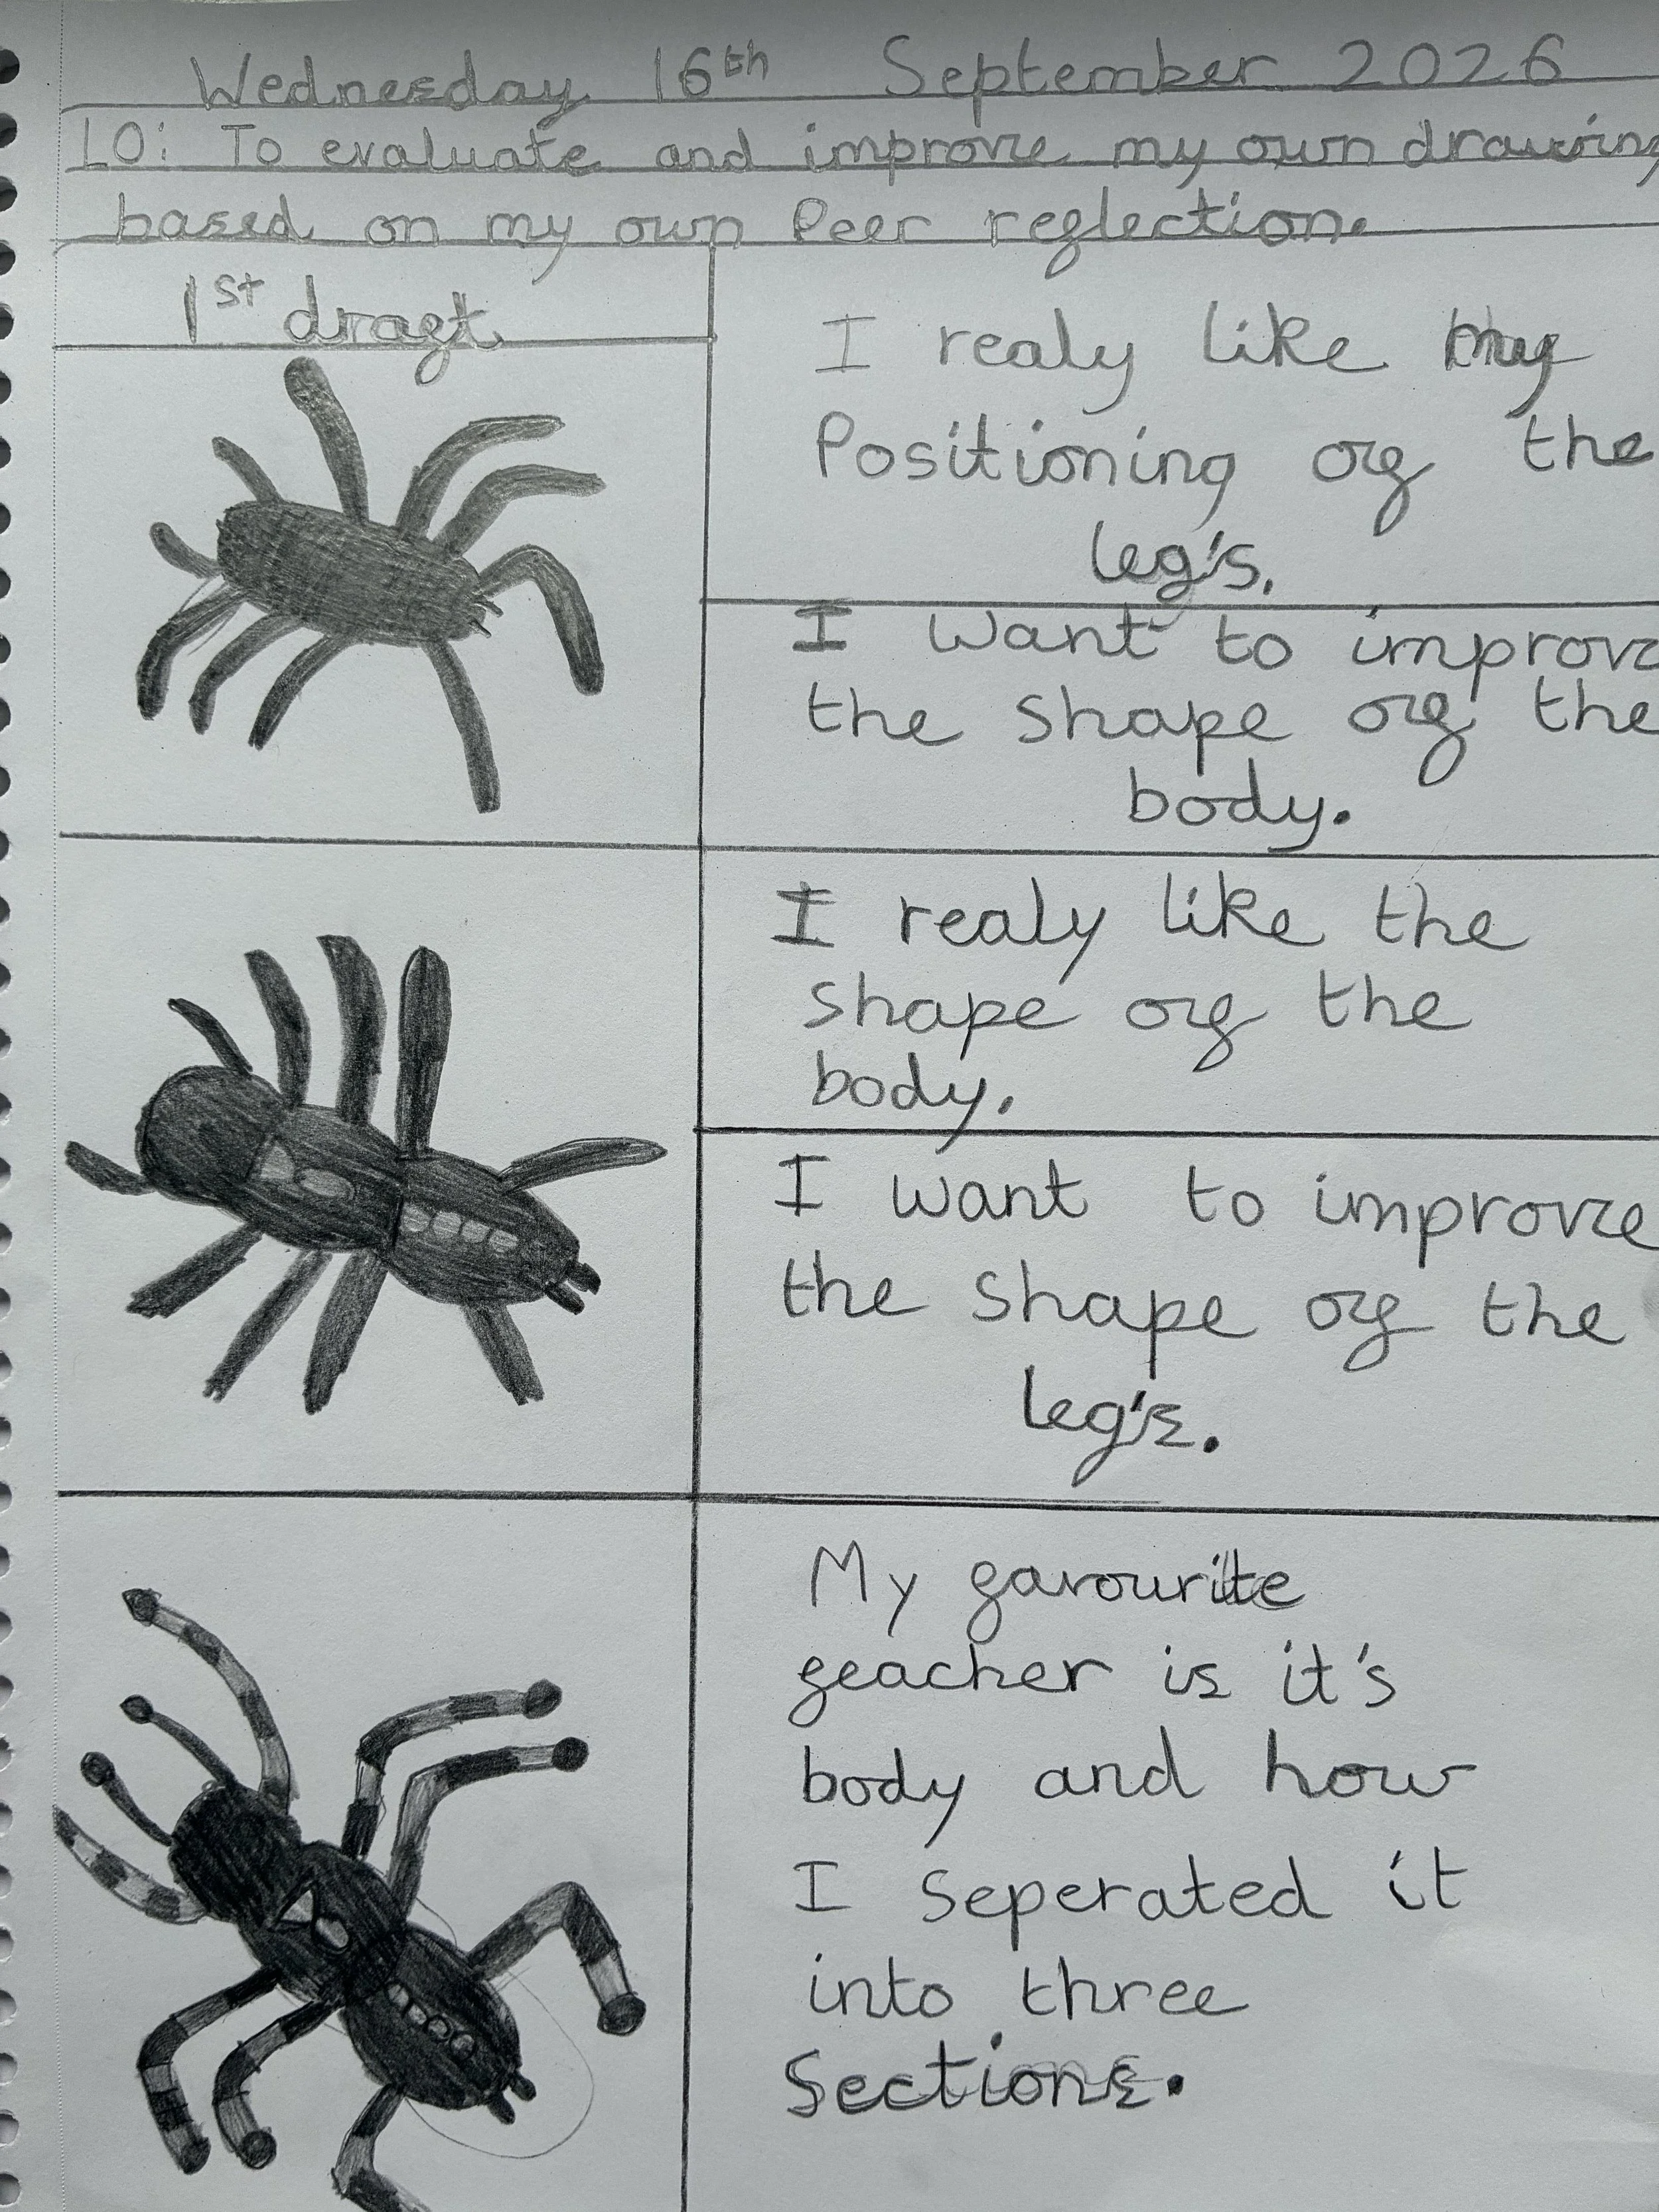 Wednesday 16th September 2026
LO: To evaluate and improve my own drawing
based on my own Peer reflection.
1st draft
I realy like my
Positioning of the
leg's.
I want to improve
the shape of the
body.
I realy like the
shape of the
body.
I want to improve
the shape of the
leg's.
My favourite
feacher is it's
body and how
I seperated it
into three
Sections.